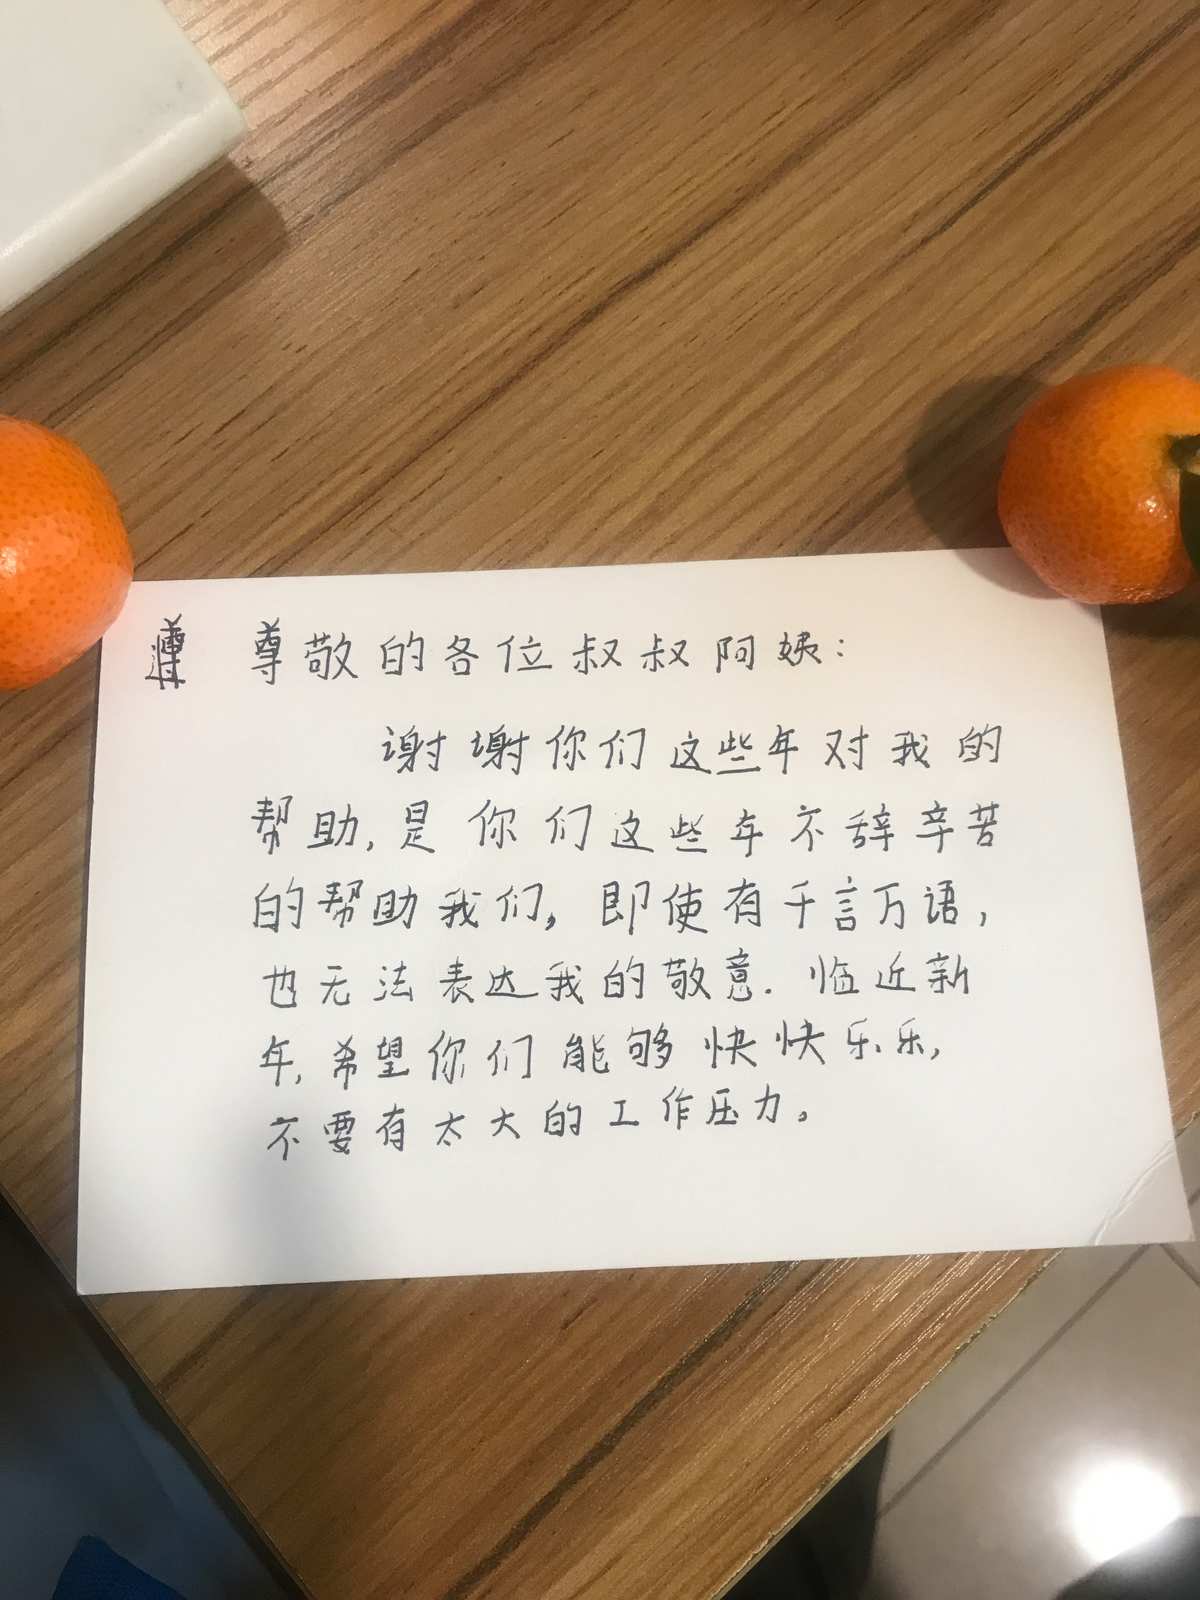 尊敬的各位叔叔阿姨：
谢谢你们这些年对我的
帮助,是你们这些年不辞辛苦
的帮助我们,即使有千言万语,
也无法表达我的敬意.临近新
年,希望你们能够快快乐乐,
不要有太大的工作压力。